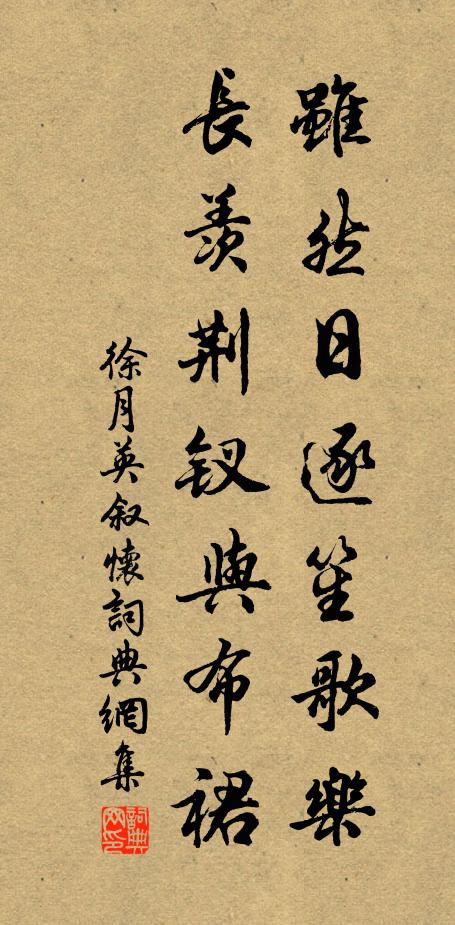 雖然日逐笙歌樂
長羨荆釵與布裙
徐月英叙懷詞典網集
詞典網印